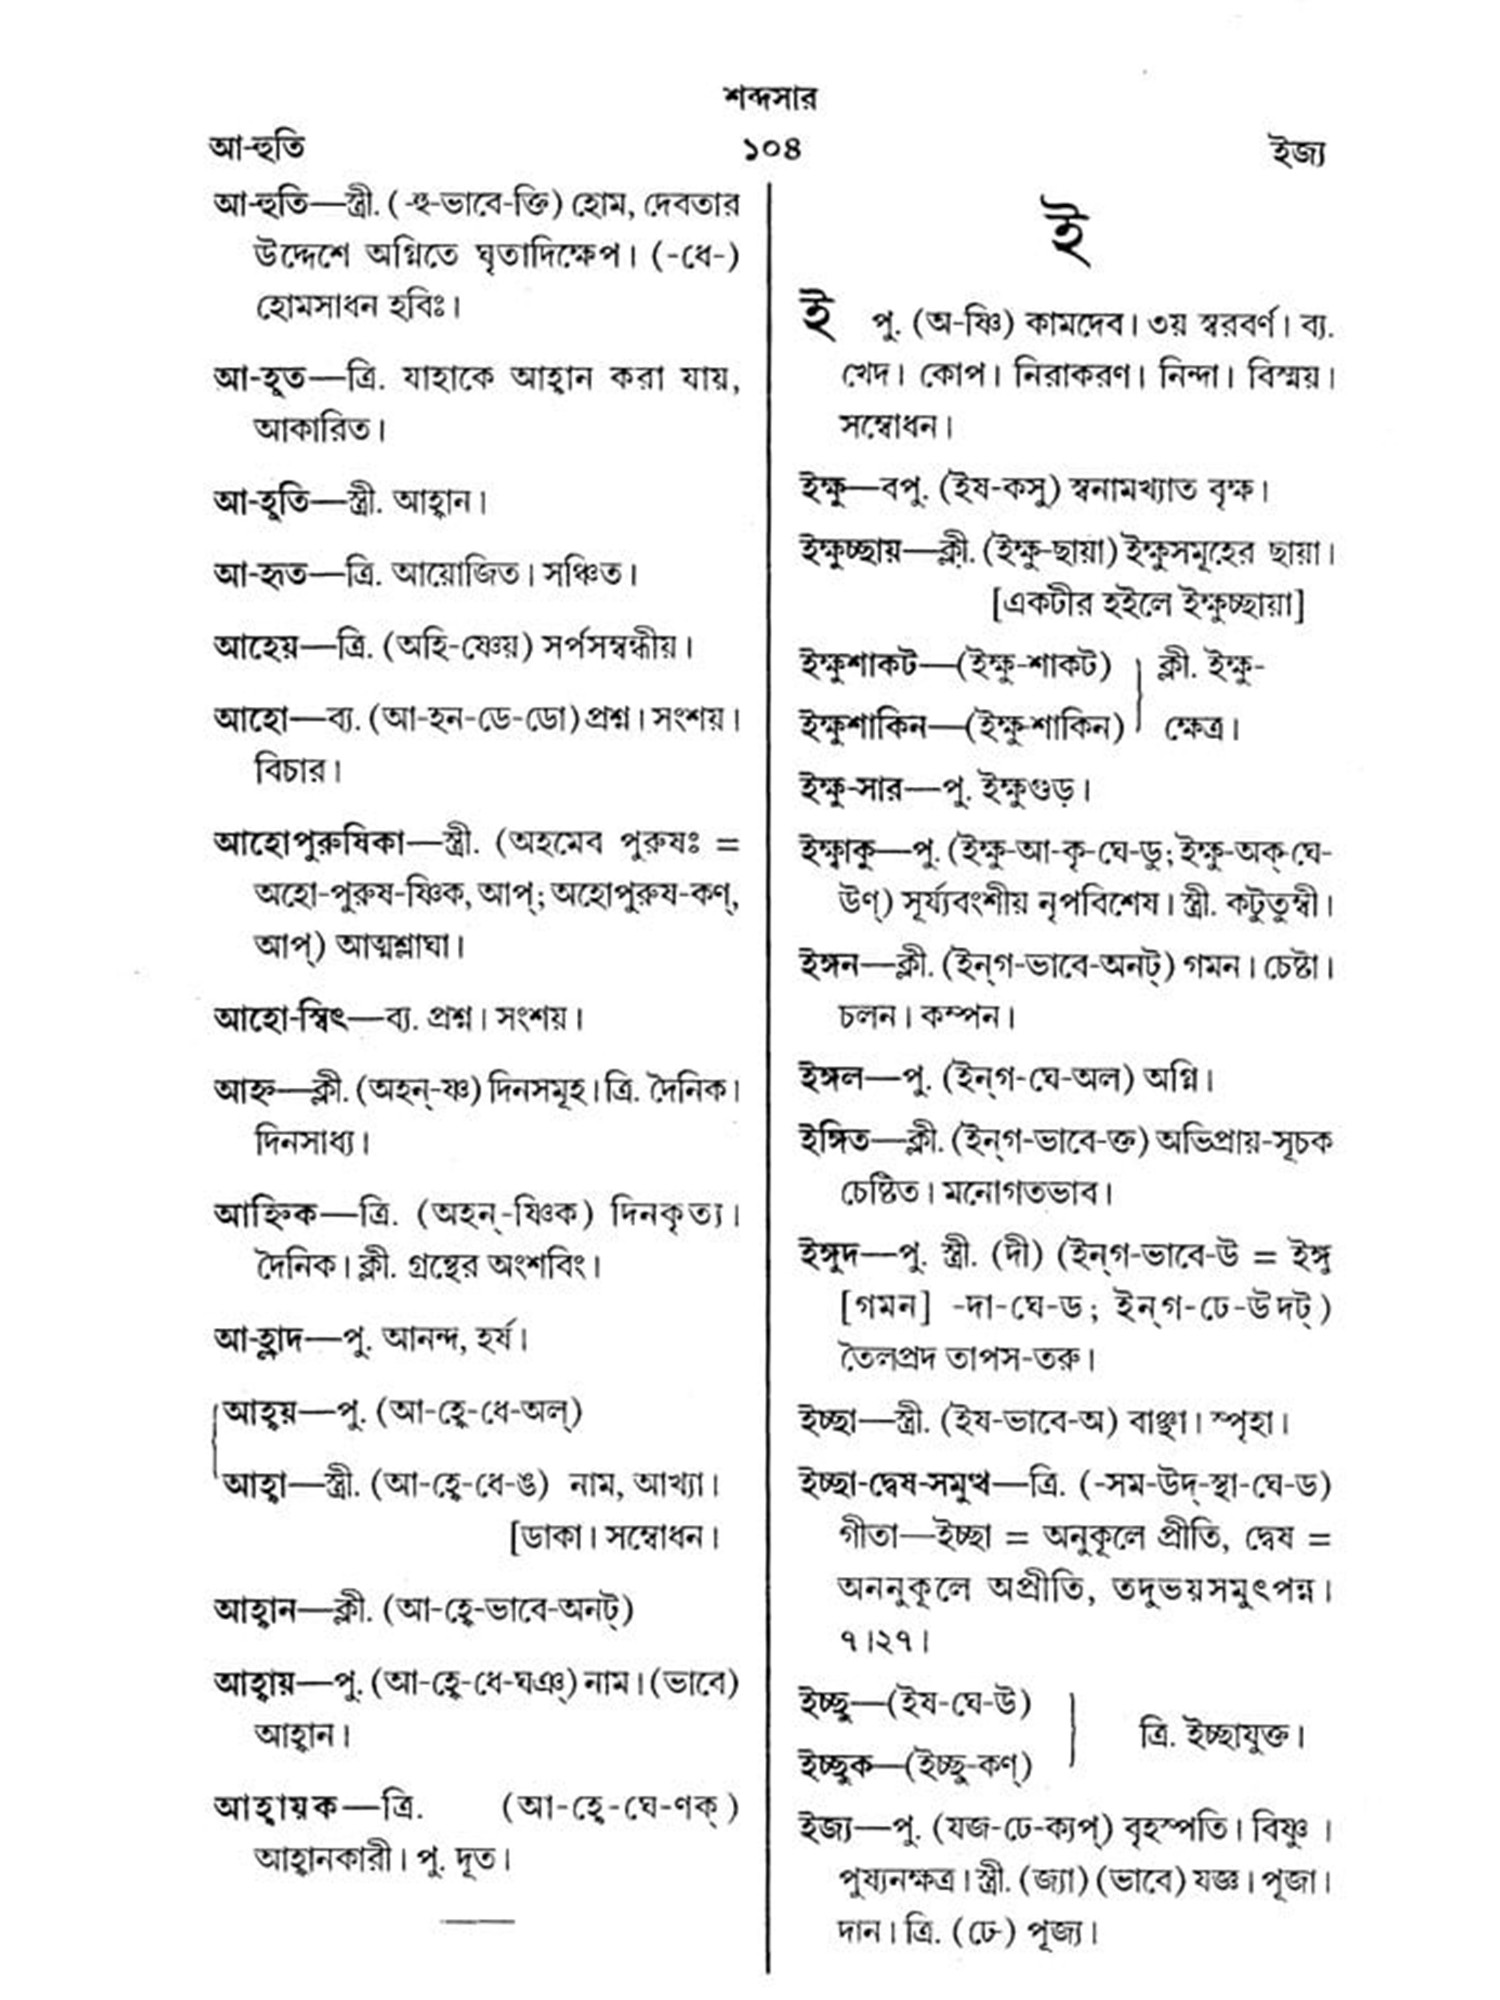 শব্দসার
আ-হুতি ১০৪ ইজ্য
আ-হুতি—স্ত্রী. (-হু-ভাবে-ক্তি) হোম, দেবতার
উদ্দেশে অগ্নিতে ঘৃতাদিক্ষেপ। (-ধে-)
হোমসাধন হবিঃ।
আ-হূত—ত্রি. যাহাকে আহ্বান করা যায়,
আকারিত।
আ-হূতি—স্ত্রী. আহ্বান।
আ-হৃত—ত্রি. আয়োজিত। সঞ্চিত।
আহেয়—ত্রি. (অহি-ষ্ণেয়) সর্পসম্বন্ধীয়।
আহো—ব্য. (আ-হন-ডে-ডো) প্রশ্ন। সংশয়।
বিচার।
আহোপুরুষিকা—স্ত্রী. (অহমেব পুরুষঃ =
অহো-পুরুষ-ষ্ণিক, আপ্; অহোপুরুষ-কণ্,
আপ্) আত্মশ্লাঘা।
আহো-স্বিৎ—ব্য. প্রশ্ন। সংশয়।
আহ্ন—ক্লী. (অহন্-ষ্ণ) দিনসমূহ। ত্রি. দৈনিক।
দিনসাধ্য।
আহ্নিক—ত্রি. (অহন্-ষ্ণিক) দিনকৃত্য।
দৈনিক। ক্লী. গ্রন্থের অংশবিং।
আ-হ্লাদ—পু. আনন্দ, হর্ষ।
আহ্বয়—পু. (আ-হ্বে-ধে-অল্)
আহ্বা—স্ত্রী. (আ-হ্বে-ধে-ঙ) নাম, আখ্যা।
[ডাকা। সম্বোধন।
আহ্বান—ক্লী. (আ-হ্বে-ভাবে-অনট্)
আহ্বায়—পু. (আ-হ্বে-ধে-ঘঞ্) নাম। (ভাবে)
আহ্বান।
আহ্বায়ক—ত্রি. (আ-হ্বে-ঘে-ণক্)
আহ্বানকারী। পু. দূত।
ই
ই পু. (অ-ষ্ণি) কামদেব। ৩য় স্বরবর্ণ। ব্য.
খেদ। কোপ। নিরাকরণ। নিন্দা। বিস্ময়।
সম্বোধন।
ইক্ষু—বপু. (ইষ-কসু) স্বনামখ্যাত বৃক্ষ।
ইক্ষুচ্ছায়—ক্লী. (ইক্ষু-ছায়া) ইক্ষুসমূহের ছায়া।
[একটীর হইলে ইক্ষুচ্ছায়া]
ইক্ষুশাকট—(ইক্ষু-শাকট) ক্লী. ইক্ষু-
ইক্ষুশাকিন—(ইক্ষু-শাকিন) ক্ষেত্র।
ইক্ষু-সার—পু. ইক্ষুগুড়।
ইক্ষ্বাকু—পু. (ইক্ষু-আ-কৃ-ঘে-ডু; ইক্ষু-অক্-ঘে-
উণ্) সূর্য্যবংশীয় নৃপবিশেষ। স্ত্রী. কটুতুম্বী।
ইঙ্গন—ক্লী. (ইন্‌গ-ভাবে-অনট্) গমন। চেষ্টা।
চলন। কম্পন।
ইঙ্গল—পু. (ইন্‌গ-ঘে-অল) অগ্নি।
ইঙ্গিত—ক্লী. (ইন্‌গ-ভাবে-ক্ত) অভিপ্রায়-সূচক
চেষ্টিত। মনোগতভাব।
ইঙ্গুদ—পু. স্ত্রী. (দী) (ইন্‌গ-ভাবে-উ = ইঙ্গু
[গমন] -দা-ঘে-ড; ইন্‌গ-ঢে-উদট্)
তৈলপ্রদ তাপস-তরু।
ইচ্ছা—স্ত্রী. (ইষ-ভাবে-অ) বাঞ্ছা। স্পৃহা।
ইচ্ছা-দ্বেষ-সমুত্থ—ত্রি. (-সম-উদ্-স্থা-ঘে-ড)
গীতা—ইচ্ছা = অনুকূলে প্রীতি, দ্বেষ =
অননুকূলে অপ্রীতি, তদুভয়সমুৎপন্ন।
৭।২৭।
ইচ্ছু—(ইষ-ঘে-উ)
ত্রি. ইচ্ছাযুক্ত।
ইচ্ছুক—(ইচ্ছু-কণ্)
ইজ্য—পু. (যজ-ঢে-ক্যপ্) বৃহস্পতি। বিষ্ণু।
পুষ্যনক্ষত্র। স্ত্রী. (জ্যা) (ভাবে) যজ্ঞ। পূজা।
দান। ত্রি. (ঢে-) পূজ্য।